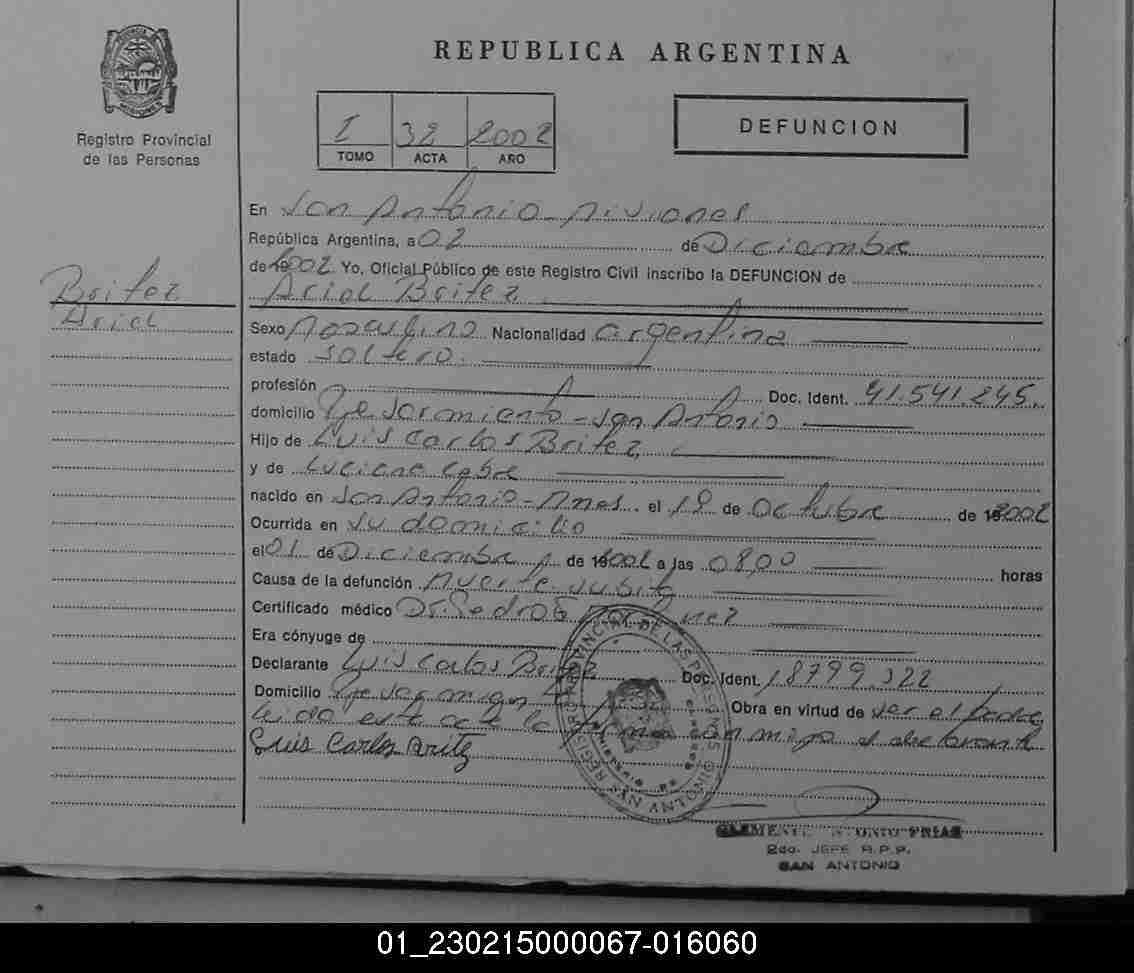 REPUBLICA ARGENTINA
Registro Provincial
de las Personas
I 32 2002
TOMO ACTA AÑO
DEFUNCION
En San Antonio Misiones
República Argentina, a 02 de Diciembre
de 2002 Yo, Oficial Público de este Registro Civil inscribo la DEFUNCION de
Britez
Ariel
Ariel Britez
Sexo Masculino Nacionalidad argentina
estado soltero.
profesión Doc. Ident. 41.541.245.
domicilio Sarmiento - San Antonio
Hijo de Luis Carlos Britez
y de
nacido en San Antonio - Mnes. el 19 de Octubre de 2002
Ocurrida en su domicilio
el 01 de Diciembre de 2002 a las 08,00 horas
Causa de la defunción Muerte subita
Certificado médico Dr. Pedro
Era cónyuge de
Declarante Luis Carlos Britez Doc. Ident. 18799.322
Domicilio Obra en virtud de ser el padre
leida este acta la firma conmigo el declarante
Luis Carlos Britez
REGISTRO PROVINCIAL DE LAS PERSONAS
SAN ANTONIO
CLEMENTE ANTONIO FRIAS
2do. JEFE R.P.P.
SAN ANTONIO
01_230215000067-016060